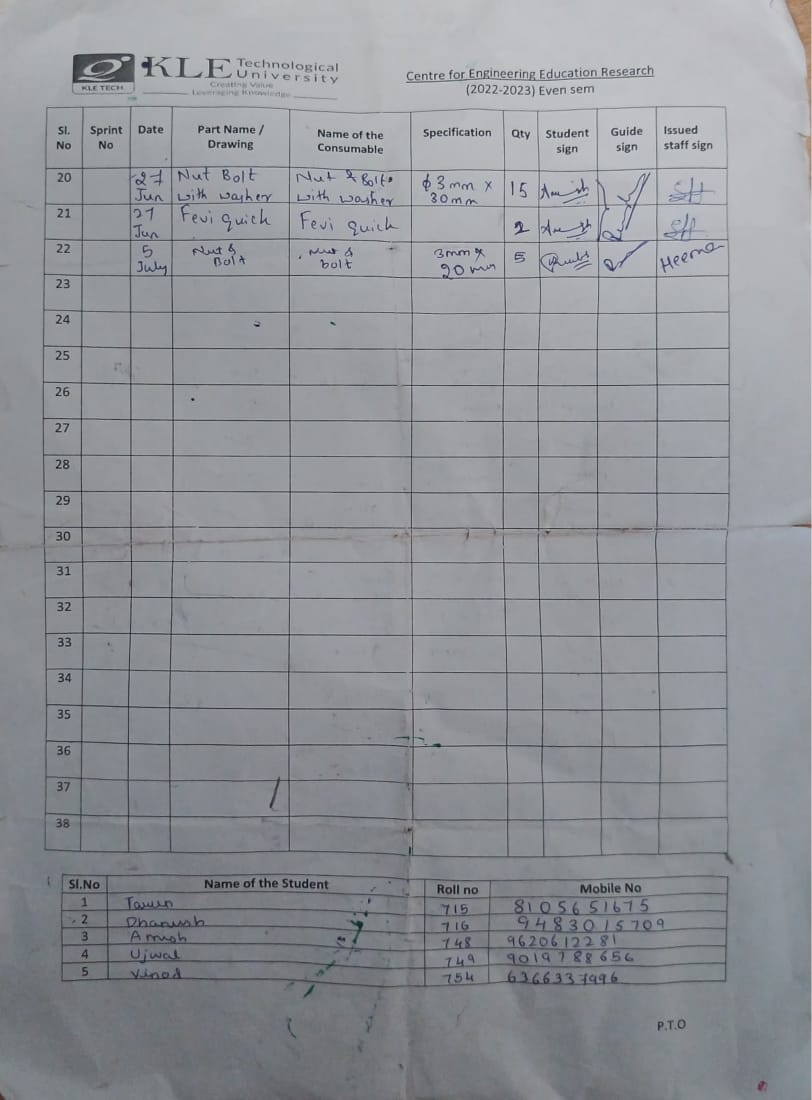 KLE Technological University
KLE TECH.
Creating Value
Leveraging Knowledge
Centre for Engineering Education Research
(2022-2023) Even sem
Sl. No Sprint No Date Part Name / Drawing Name of the Consumable Specification Qty Student sign Guide sign Issued staff sign
20 27 Jun Nut Bolt with washer Nut & Bolt with washer ϕ3mm x 30mm 15 Amish
21 27 Jun Fevi quick Fevi quick 2 Amish
22 5 July Nut & Bolt Nut & bolt 3mm x 20mm 5 Heema
23
24
25
26
27
28
29
30
31
32
33
34
35
36
37
38
Sl.No Name of the Student Roll no Mobile No
1 715 8105651675
2 Dhanush 716 9483015709
3 Amish 748 9620612281
4 Ujwal 749 9019788656
5 Vinod 754 6366337996
P.T.O